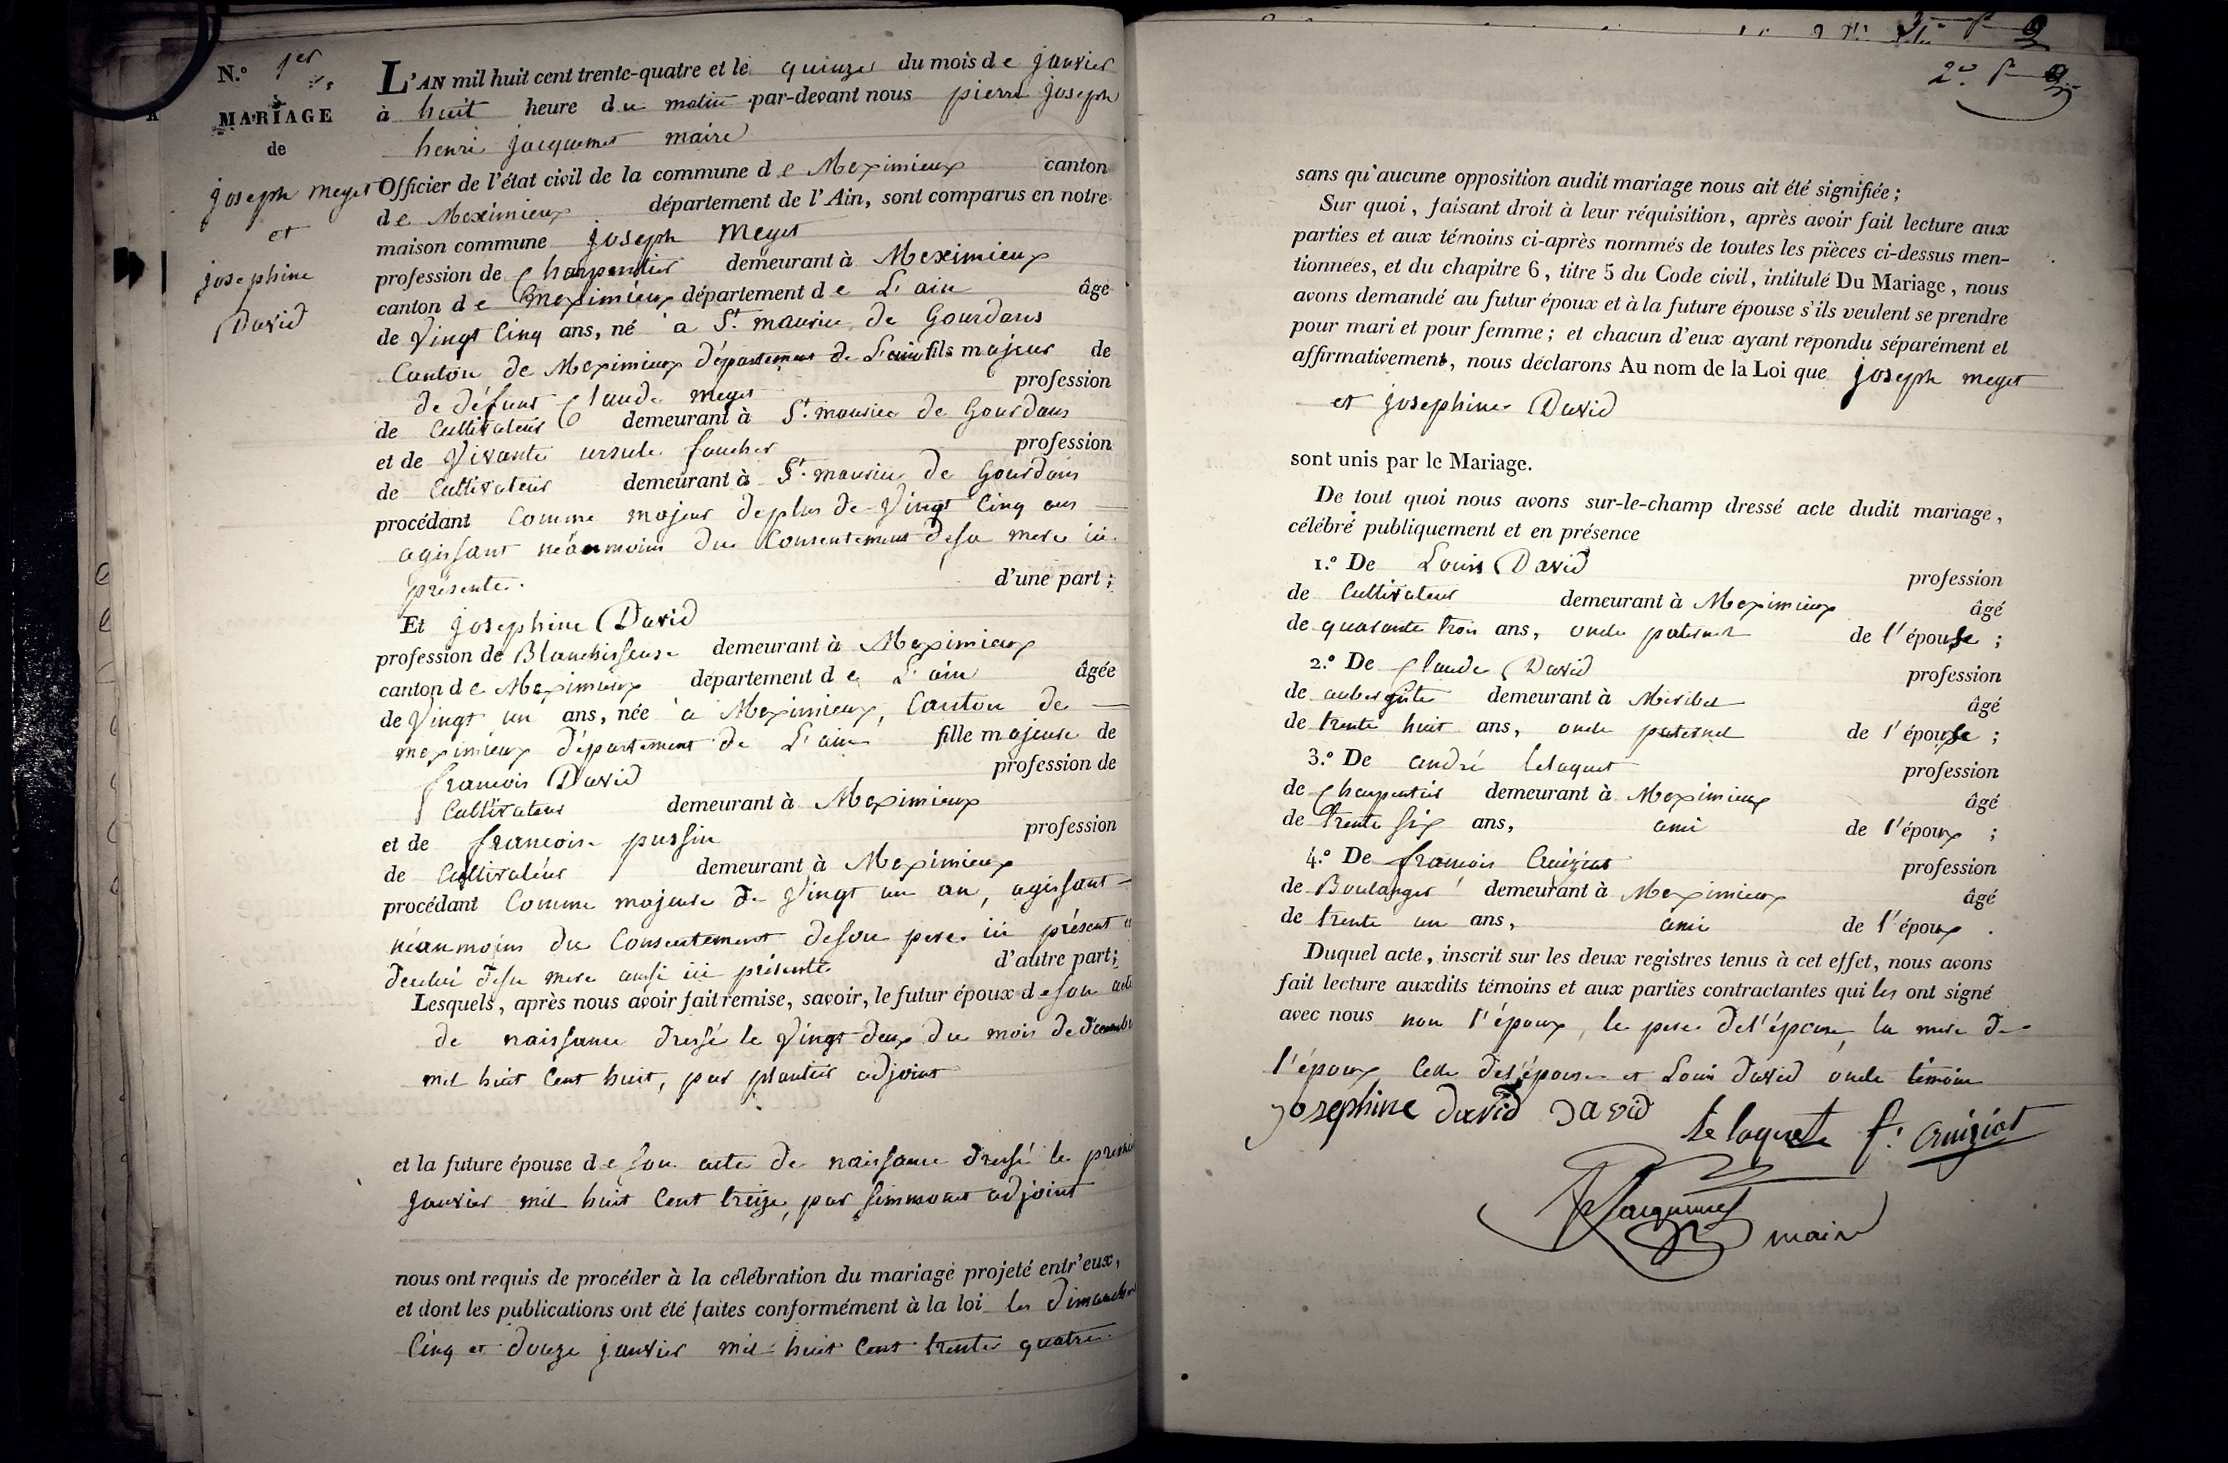 N.º 1er
MARIAGE
de
joseph meyet
et
josephine
David
L'AN mil huit cent trente-quatre et le quinze du mois de janvier
à huit heure du matin par-devant nous pierre joseph
henri jacquemet maire
Officier de l'état civil de la commune de Meximieux canton
de Meximieux département de l'Ain, sont comparus en notre
maison commune joseph Meyet
profession de Charpentier demeurant à Meximieux
canton de Meximieux département de L'ain âgé
de Vingt Cinq ans, né a St. maurice de Gourdans
Canton de Meximieux département de L'ain fils majeur de
de défunt Claude meyet profession
de Cultivateur demeurant à St. maurice de Gourdans
et de Vivante ursule faucher profession
de Cultivateur demeurant à St. maurice de Gourdans
procédant Comme majeur de plus de Vingt Cinq ans
agissant néanmoins du Consentement de sa mere ici
présente. d'une part;
Et josephine David
profession de Blanchisseuse demeurant à Meximieux
canton de Meximieux département de L'ain âgée
de Vingt un ans, née a Meximieux, Canton de
meximieux département de L'ain fille majeure de
francois David profession de
Cultivateur demeurant à Meximieux
et de francoise pussin profession
de Cultivateur demeurant à Meximieux
procédant Comme majeure de Vingt un an, agissant
néanmoins du Consentement de son pere ici présent et
de celui de sa mere aussi ici présente d'autre part;
Lesquels, après nous avoir fait remise, savoir, le futur époux de son acte
de naissance dressé le Vingt deux du mois de decembre
mil huit Cent huit, par plantier adjoint
et la future épouse de son acte de naissance dressé le premier
janvier mil huit Cent treize, par simmonet adjoint
nous ont requis de procéder à la célébration du mariage projeté entr'eux,
et dont les publications ont été faites conformément à la loi les dimanches
Cinq et douze janvier mil huit Cent trente quatre
sans qu'aucune opposition audit mariage nous ait été signifiée;
Sur quoi, faisant droit à leur réquisition, après avoir fait lecture aux
parties et aux témoins ci-après nommés de toutes les pièces ci-dessus men-
tionnées, et du chapitre 6, titre 5 du Code civil, intitulé Du Mariage, nous
avons demandé au futur époux et à la future épouse s'ils veulent se prendre
pour mari et pour femme; et chacun d'eux ayant répondu séparément et
affirmativement, nous déclarons Au nom de la Loi que joseph meyet
et josephine David
sont unis par le Mariage.
De tout quoi nous avons sur-le-champ dressé acte dudit mariage,
célébré publiquement et en présence
1.º De Louis David profession
de Cultivateur demeurant à Meximieux âgé
de quarante trois ans, oncle paternel de l'épouse;
2.º De Claude David profession
de aubergiste demeurant à Miribel âgé
de trente huit ans, oncle paternel de l'épouse;
3.º De andré Lelaquet profession
de Charpentier demeurant à Meximieux âgé
de trente six ans, ami de l'époux;
4.º De francois Cruiziat profession
de Boulanger demeurant à Meximieux âgé
de trente un ans, ami de l'époux.
Duquel acte, inscrit sur les deux registres tenus à cet effet, nous avons
fait lecture auxdits témoins et aux parties contractantes qui les ont signé
avec nous non l'époux, le pere de l'épouse, la mere de
l'époux Celle de l'épouse et Louis david oncle témoin
josephine david David
Lelaquet f. cruiziat
Jacquemet maire